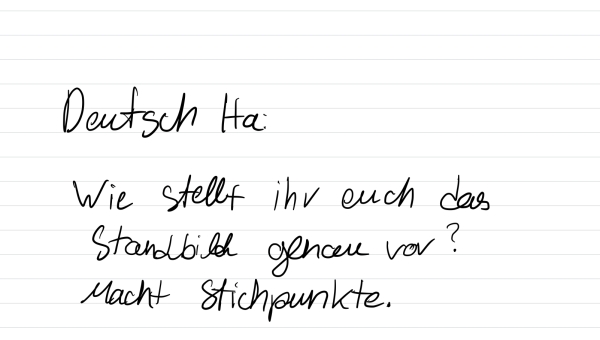 Deutsch Ha:
Wie stellt ihr euch das
Standbild genau vor?
Macht Stichpunkte.